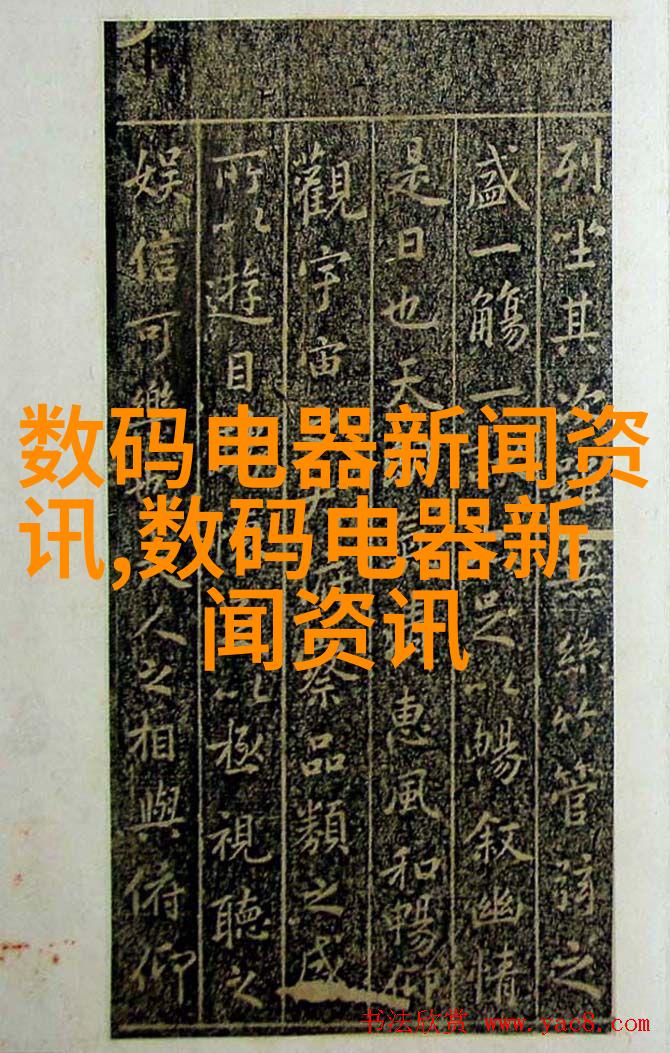 列坐其次雖無絲竹管弦之
盛一觴一足以暢叙幽情
是日也天惠風和暢仰
觀宇宙察品類之盛
所以遊目以極視聽之
娱信可樂人之相與俯仰
数码电器新闻资
讯,数码电器新
闻资讯
书法欣赏 www.yac8.com